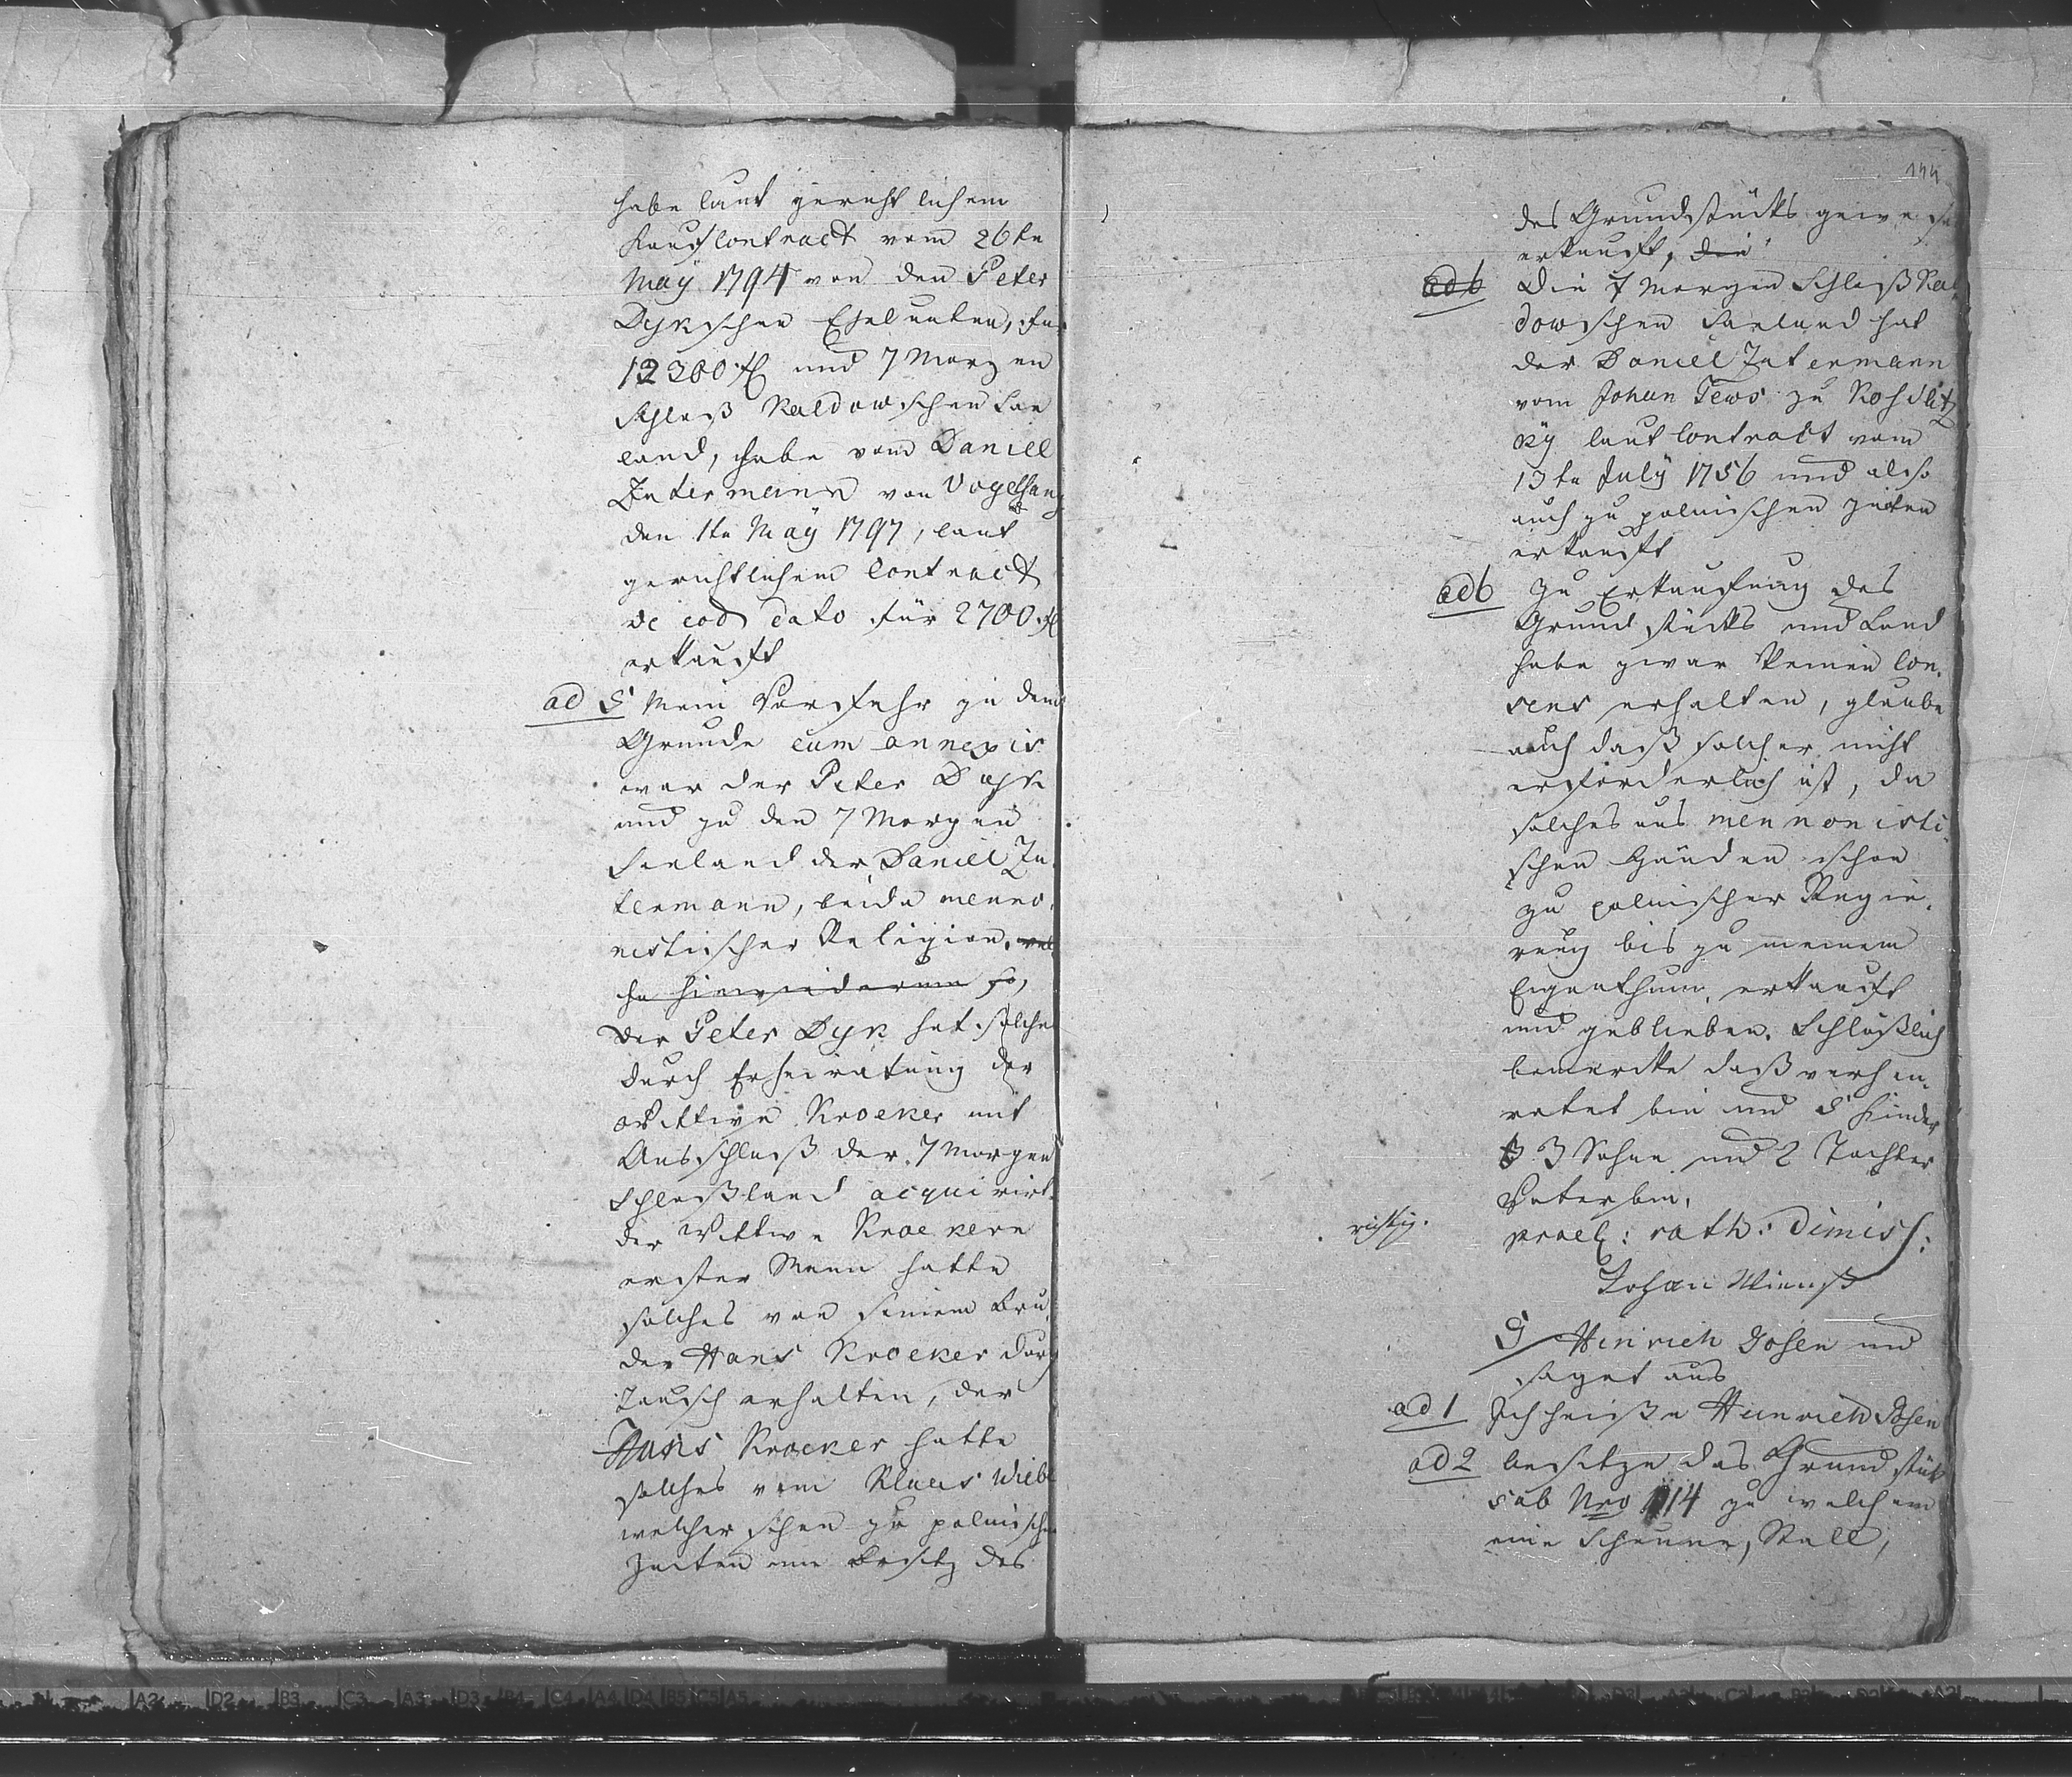 habe laut gerichtlichem
Kaufcontract vom 26tn
May 1794 von den Peter
Dykschen Eheleuten, für
12300 fl und 7 Morgen
Schloß Kaldowschen Lan
land, habe vom Daniell
Intermann von Vogelsang
den 1tn May 1797, laut
gerichtlichem Contract
de eod dato für 2700 fl
erkauft
ad 5 Mein Vorfahr zu dem
Grunde cum annexis
war der Peter Dyk
und zu den 7 Morgen
land der Daniel In
termann, beide menno
nistischer Religion. wel
che hinwiederum so,
Der Peter Dyk hat solches
durch Erheiratung der
Wittwe Kroeker mit
Ausschluß der 7 Morgen
Schloßland acquirirt.
der Wittwe Kroekern
erster Mann hatte
solches von seinem Bru
der Hans Kroeker durch
Tausch erhalten, der
Hans Kroeker hatte
solches vom Klaas Wiebe
welcher schon zu polnischen
Zeiten im Besitz des
144
des Grundstücks gewesen
erkauft, die
ad 6 Die 7 Morgen Schloß Kal
dowschen land hat
der Daniel Intermann
vom Johan Tews zu
ky laut Contract vom
13tn July 1756 und also
auch zu polnischen Zeiten
erkauft
ad 6 Zu Erkaufung des
Grundstücks und Land
habe zwar keinen Con,
sens erhalten, glaube
auch daß solcher nicht
erforderlich ist, da
solches aus mennonisti,
schen Händen schon
zu polnischer Regie,
rung bis zu meinem
Eigenthum, erkauft
und geblieben. Schlüßlich
bemerke daß verhei,
ratet bin und 5 Kinder
3 Sohne und 2 Tochter
Vater bin.
richtig.
prael: rath: dimiss:
Johan Wienß
9 Hinrich Josen und
saget aus
ad 1 Ich heiße Heinrich Josen
ad 2 besitze das Grundstück
sub Nro 114 zu welchem
eine Scheune, Stall,